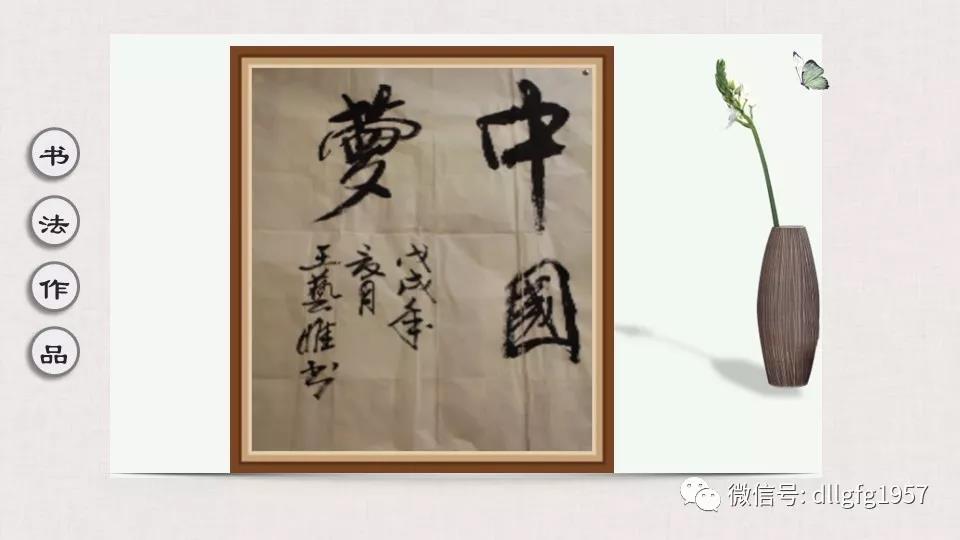 书法作品
中國
夢
戊戌年
六月
王藝雅书
微信号: dllgfg1957